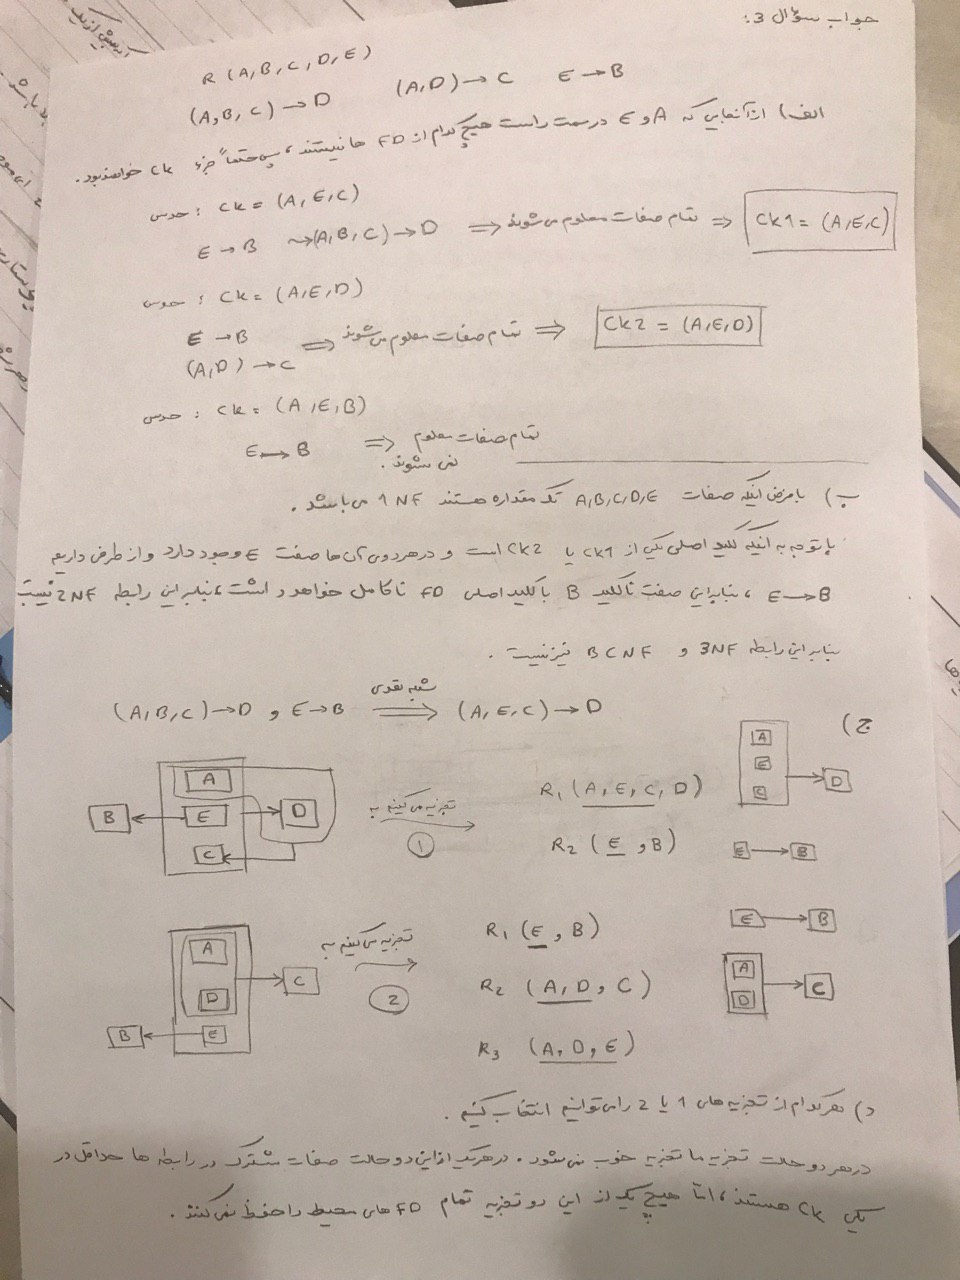 جواب سؤال 3:
R (A,B,C,D,E)
(A,B,C) → D (A,D) → C E → B
الف) از آنجایی که A و E در سمت راست هیچ کدام از FD ها نیستند، پس حتماً جزء Ck خواهند بود.
حدس : Ck = (A,E,C)
E → B ⇝ (A,B,C) → D ⇒ تمام صفات معلوم می شوند ⇒ Ck1 = (A,E,C)
حدس : Ck = (A,E,D)
E → B
(A,D) → C ⇒ تمام صفات معلوم می شوند ⇒ Ck2 = (A,E,D)
حدس : Ck = (A,E,B)
E → B ⇒ تمام صفات معلوم
نمی شوند.
ب) با فرض اینکه صفات A,B,C,D,E تک مقداره هستند 1NF می باشد.
با توجه به اینکه کلید اصلی یکی از Ck1 یا Ck2 است و در هر دوی آن ها صفت E وجود دارد و از طرفی داریم
E → B ، بنابراین صفت ناکلید B با کلید اصلی FD ناکامل خواهد داشت، بنابراین رابطه 2NF نیست
بنابراین رابطه 3NF و BCNF نیز نیست.
(A,B,C) → D و E → B شبه تعدی ⇒ (A,E,C) → D
ج)
A
E
C
D
B
تجزیه می کنیم به
1
R1 (A,E,C,D)
R2 (E,B)
A
E
C
D
E → B
A
D
E
C
B
تجزیه می کنیم به
2
R1 (E,B)
R2 (A,D,C)
R3 (A,D,E)
E → B
A
D
C
د) هر کدام از تجزیه های 1 یا 2 را می توانیم انتخاب کنیم.
در هر دو حالت تجزیه ما تجزیه خوب نمی شود. در هر یک از این دو حالت صفات مشترک در رابطه ها حداقل در
یکی Ck هستند، اما هیچ یک از این دو تجزیه تمام FD های محیط را حفظ نمی کنند.